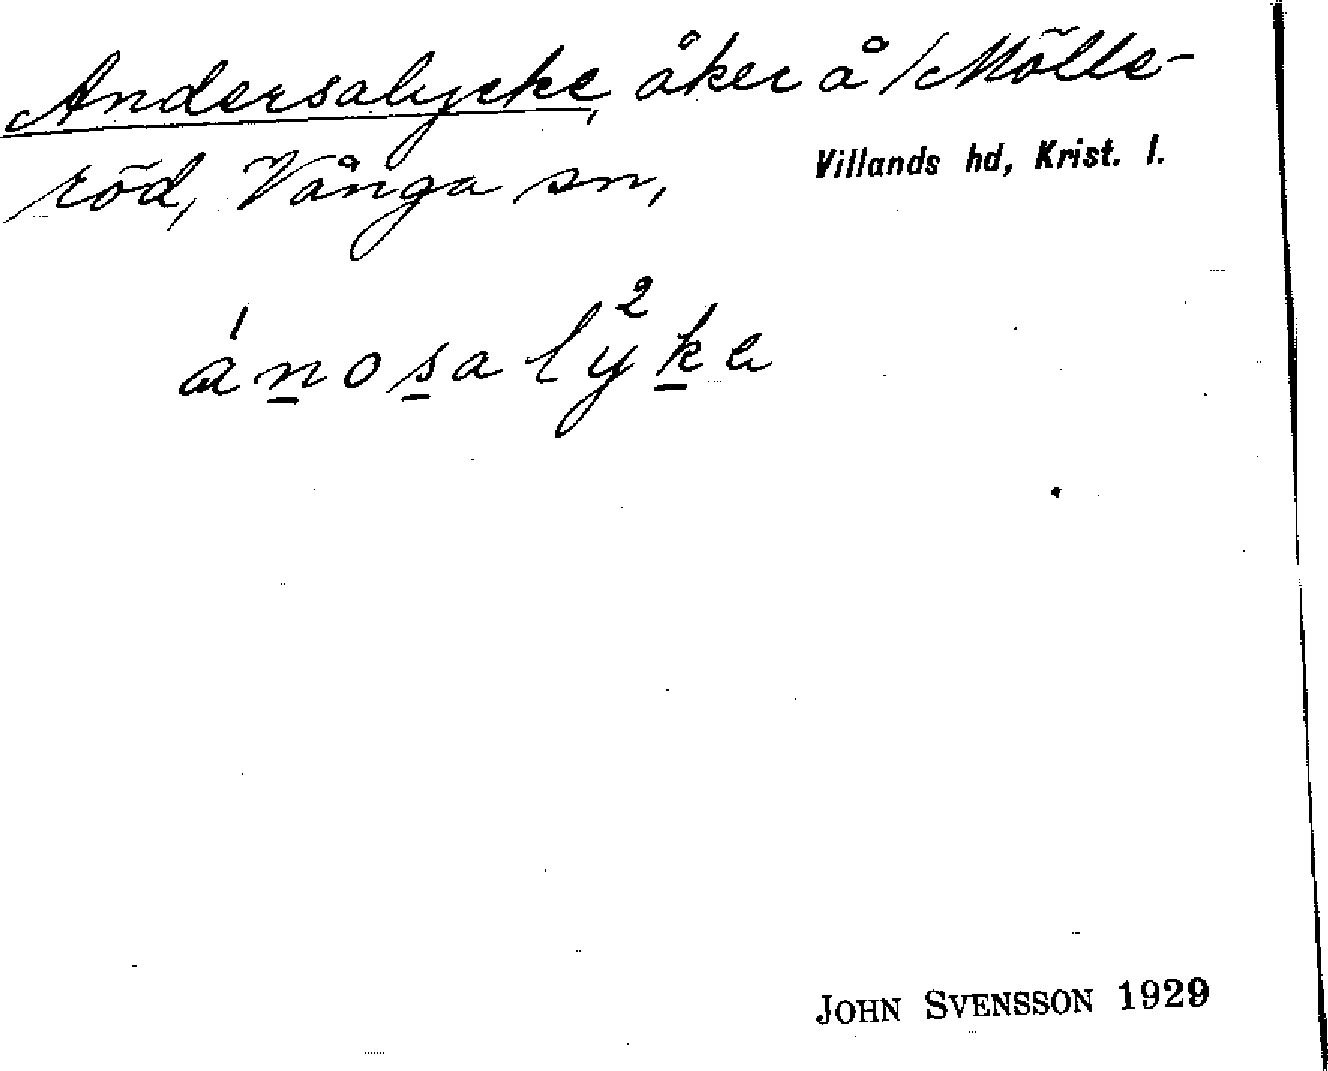 Andersalycke, åker å Mölle-
röd, Vånga sn,
Villands hd, Krist. l.
JOHN SVENSSON 1929